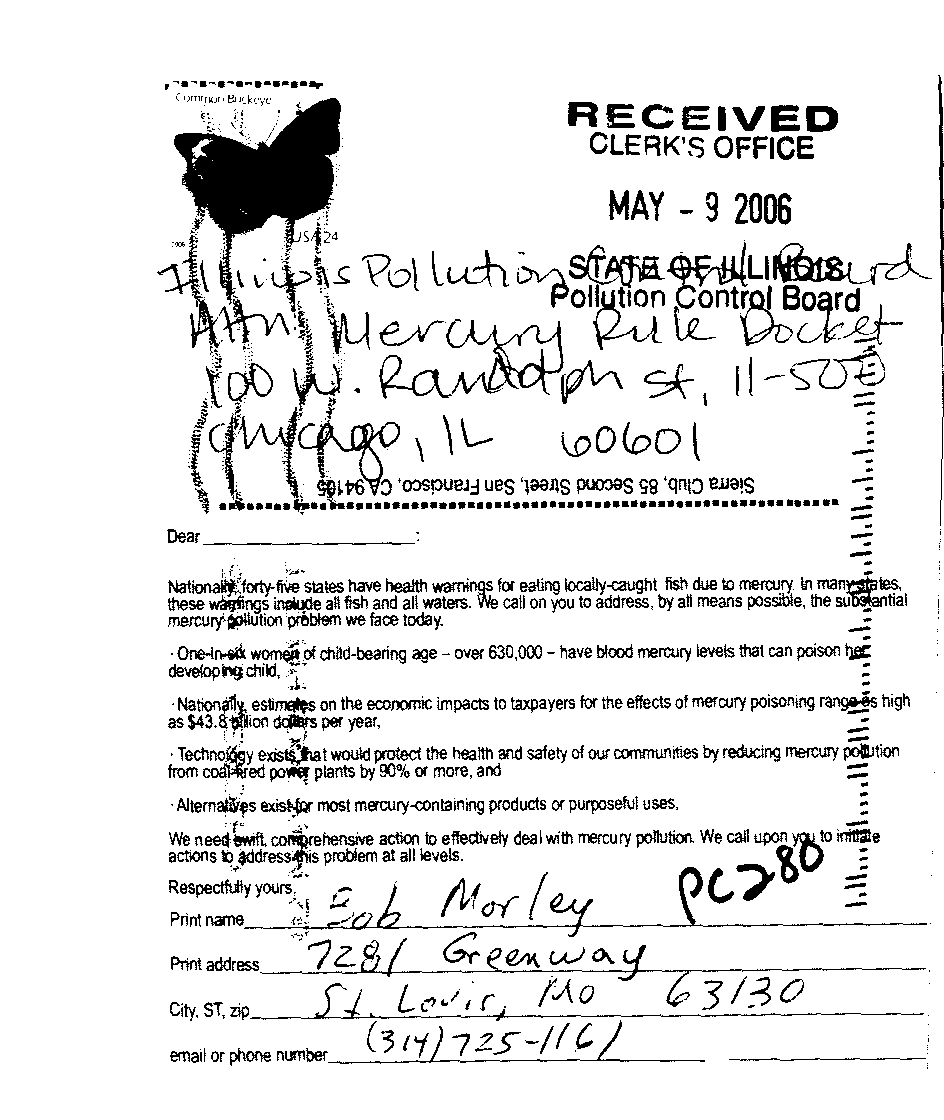 Common Buckeye
RECEIVED
CLERK'S OFFICE
MAY - 9 2006
USA 24
STATE OF ILLINOIS
Pollution Control Board
Illinois Pollution Control Board
Attn: Mercury Rule Docket
100 W. Randolph St, 11-500
Chicago, IL 60601
Sierra Club, 85 Second Street, San Francisco, CA 94105
Dear :
Nationally, forty-five states have health warnings for eating locally-caught fish due to mercury. In many states,
these warnings include all fish and all waters. We call on you to address, by all means possible, the substantial
mercury pollution problem we face today.
· One-in-six women of child-bearing age – over 630,000 – have blood mercury levels that can poison her
developing child,
· Nationally, estimates on the economic impacts to taxpayers for the effects of mercury poisoning range as high
as $43.8 billion dollars per year,
· Technology exists that would protect the health and safety of our communities by reducing mercury pollution
from coal-fired power plants by 90% or more, and
· Alternatives exist for most mercury-containing products or purposeful uses.
We need swift, comprehensive action to effectively deal with mercury pollution. We call upon you to initiate
actions to address this problem at all levels.
Respectfully yours,
PC280
Print name Bob Morley
Print address 7281 Greenway
City, ST, zip St. Louis, MO 63130
email or phone number (314)725-1161